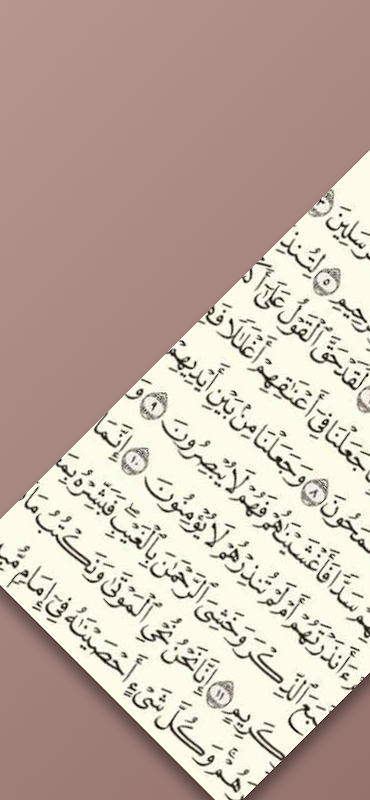 رْسَلِينَ ٣
رَّحِيمِ ٥ لِتُنذِ
لَقَدْ حَقَّ ٱلْقَوْلُ عَلَىٰٓ أَك
جَعَلْنَا فِىٓ أَعْنَٰقِهِمْ أَغْلَٰلًا فَهِ
مَحُونَ ٨ وَجَعَلْنَا مِنۢ بَيْنِ أَيْدِيهِمْ
هِمْ سَدًّا فَأَغْشَيْنَٰهُمْ فَهُمْ لَا يُبْصِرُونَ ٩ وَ
ءَأَنذَرْتَهُمْ أَمْ لَمْ تُنذِرْهُمْ لَا يُؤْمِنُونَ ١٠ إِنَّمَا
بَعَ ٱلذِّكْرَ وَخَشِىَ ٱلرَّحْمَٰنَ بِٱلْغَيْبِ فَبَشِّرْهُ بِمَ
كَرِيمٍ ١١ إِنَّا نَحْنُ نُحْىِ ٱلْمَوْتَىٰ وَنَكْتُبُ مَا
هُمْ وَكُلَّ شَىْءٍ أَحْصَيْنَٰهُ فِىٓ إِمَامٍ مُّبِي